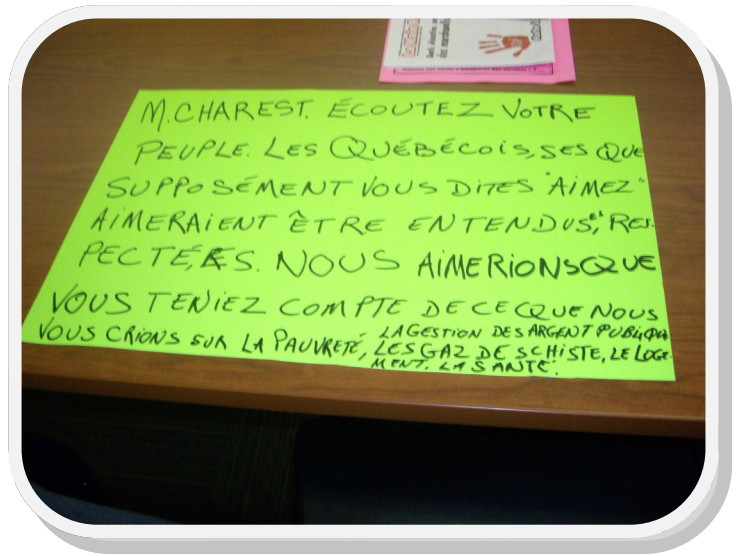 M. CHAREST. ÉCOUTEZ VOTRE
PEUPLE. LES QUÉBÉCOIS, SES QUE
SUPPOSÉMENT VOUS DITES "AIMEZ"
AIMERAIENT ÊTRE ENTENDUS, ET RES-
PECTÉ,ES. NOUS AIMERIONS QUE
VOUS TENIEZ COMPTE DE CECQUE NOUS
VOUS CRIONS SUR LA PAUVRETÉ, LA GESTION DES ARGENT PUBLIQU
LES GAZ DE SCHISTE, LE LOGE-
MENT. LA SANTÉ.